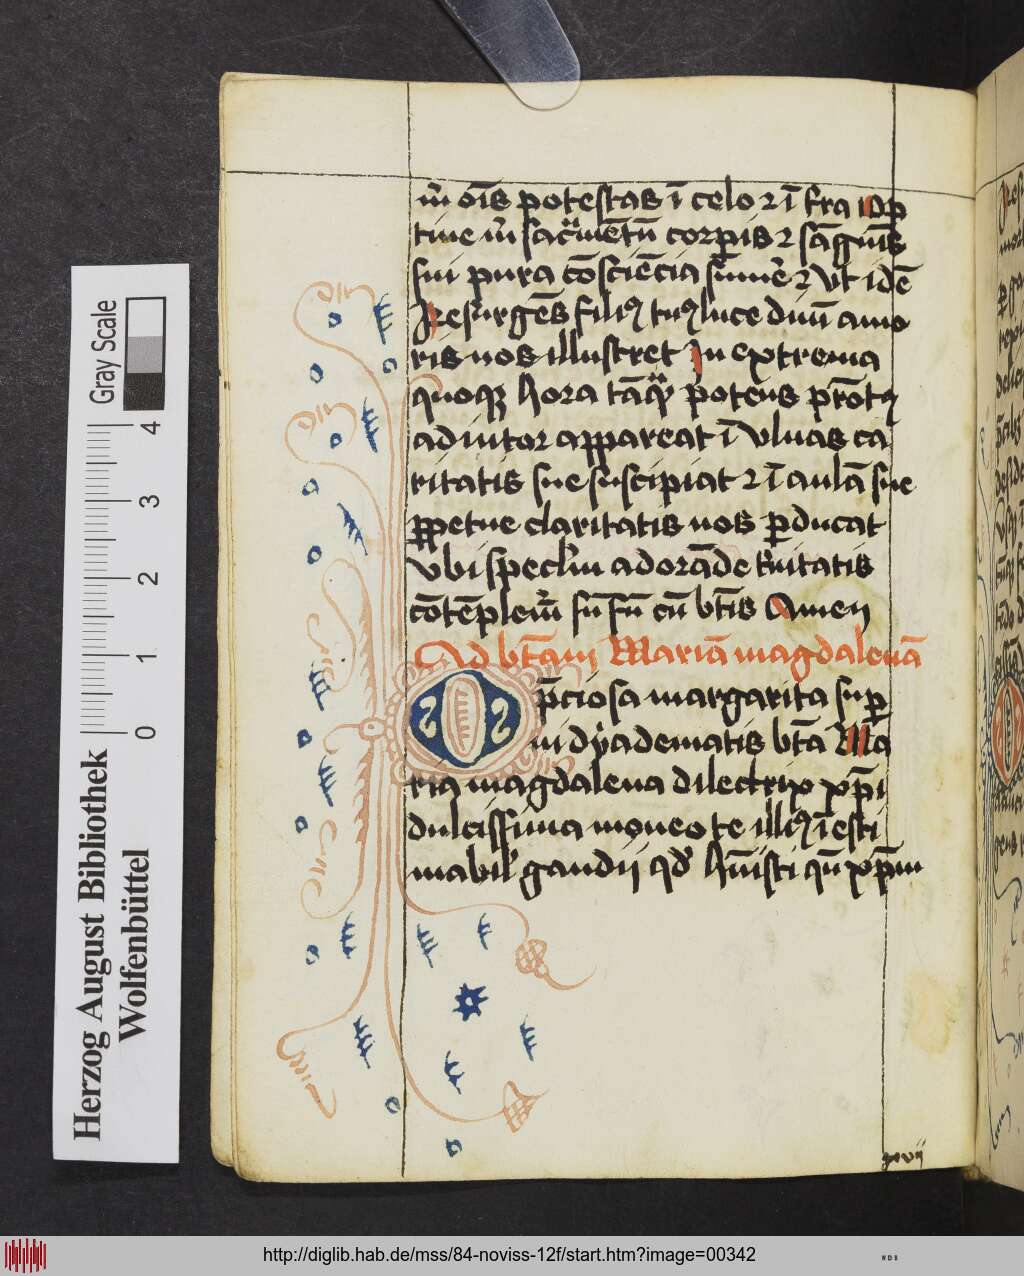 m̄ oīs potestas ī celo ⁊ ī t̄ra Op
tine m̄ sac̄mētū corpis ⁊ sāgūis
sui pura cōsciēcia sūmē ⁊ vt idē
Resurgēs filiꝰ tuꝰ luce diuī amo
ris nos illustret In extrema
quoqꝫ hora tāqᷓ potens prōtꝰ
adiutor appareat ī vlnas ca
ritatis sue suscipiat ⁊ ī aulā sue
ꝑpetue claritatis nos ꝑducat
vbi specl'm adorāde t'nitatis
cōtēplem̄ sn̄ fn̄ cū bt̄is Amen
Ad bt̄am Mariā magdalenā
O p̄ciosa margarita suꝑ
ni dyadematis bt̄a Ma
ria magdalena dilectrix xp̄i
dulcissima moneo te illiꝰ īesti
mabil' gaudij qd' hūisti qn̄ xp̄m
xvij
Gray Scale
4
3
2
1
0
Herzog August Bibliothek
Wolfenbüttel
http://diglib.hab.de/mss/84-noviss-12f/start.htm?image=00342